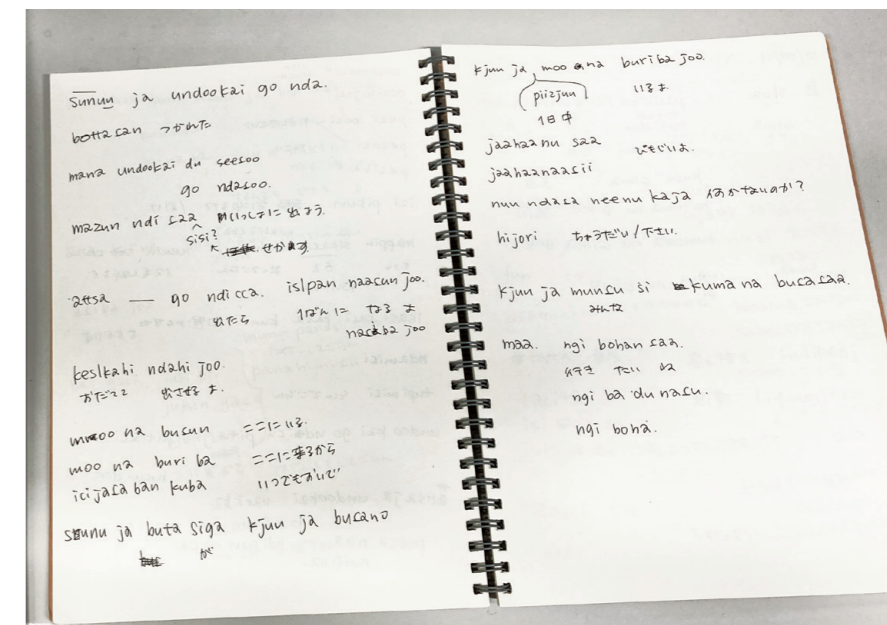 sunuu ja undookai go nda.
bottasan つかれた
mana undookai du seesoo
go ndasoo.
mazun ndi saa いっしょに 出よう
sisi?
せかす
attsa — go ndicca. islpan naasun joo.
出たら 1ばんに なる よ
nasiba joo
keslkahi ndahi joo.
おだてて 出させる よ.
moo na busun ここにいる.
moo na buri ba ここに来るから
icijasa ban kuba いつでもおいで
sunu ja buta siga kjuu ja busano
が
kjuu ja moo na buriba joo.
piizjuu いるよ
1日中
jaahaanu saa ひもじいよ.
jaahaanaasii
nuu ndasa neenu kaja 何かないのか?
hijori ちょうだい/下さい.
kjuu ja munsu si kuma na busasaa.
みんな
maa. ngi bohan saa.
行き たい ね
ngi ba du nasu.
ngi boha.